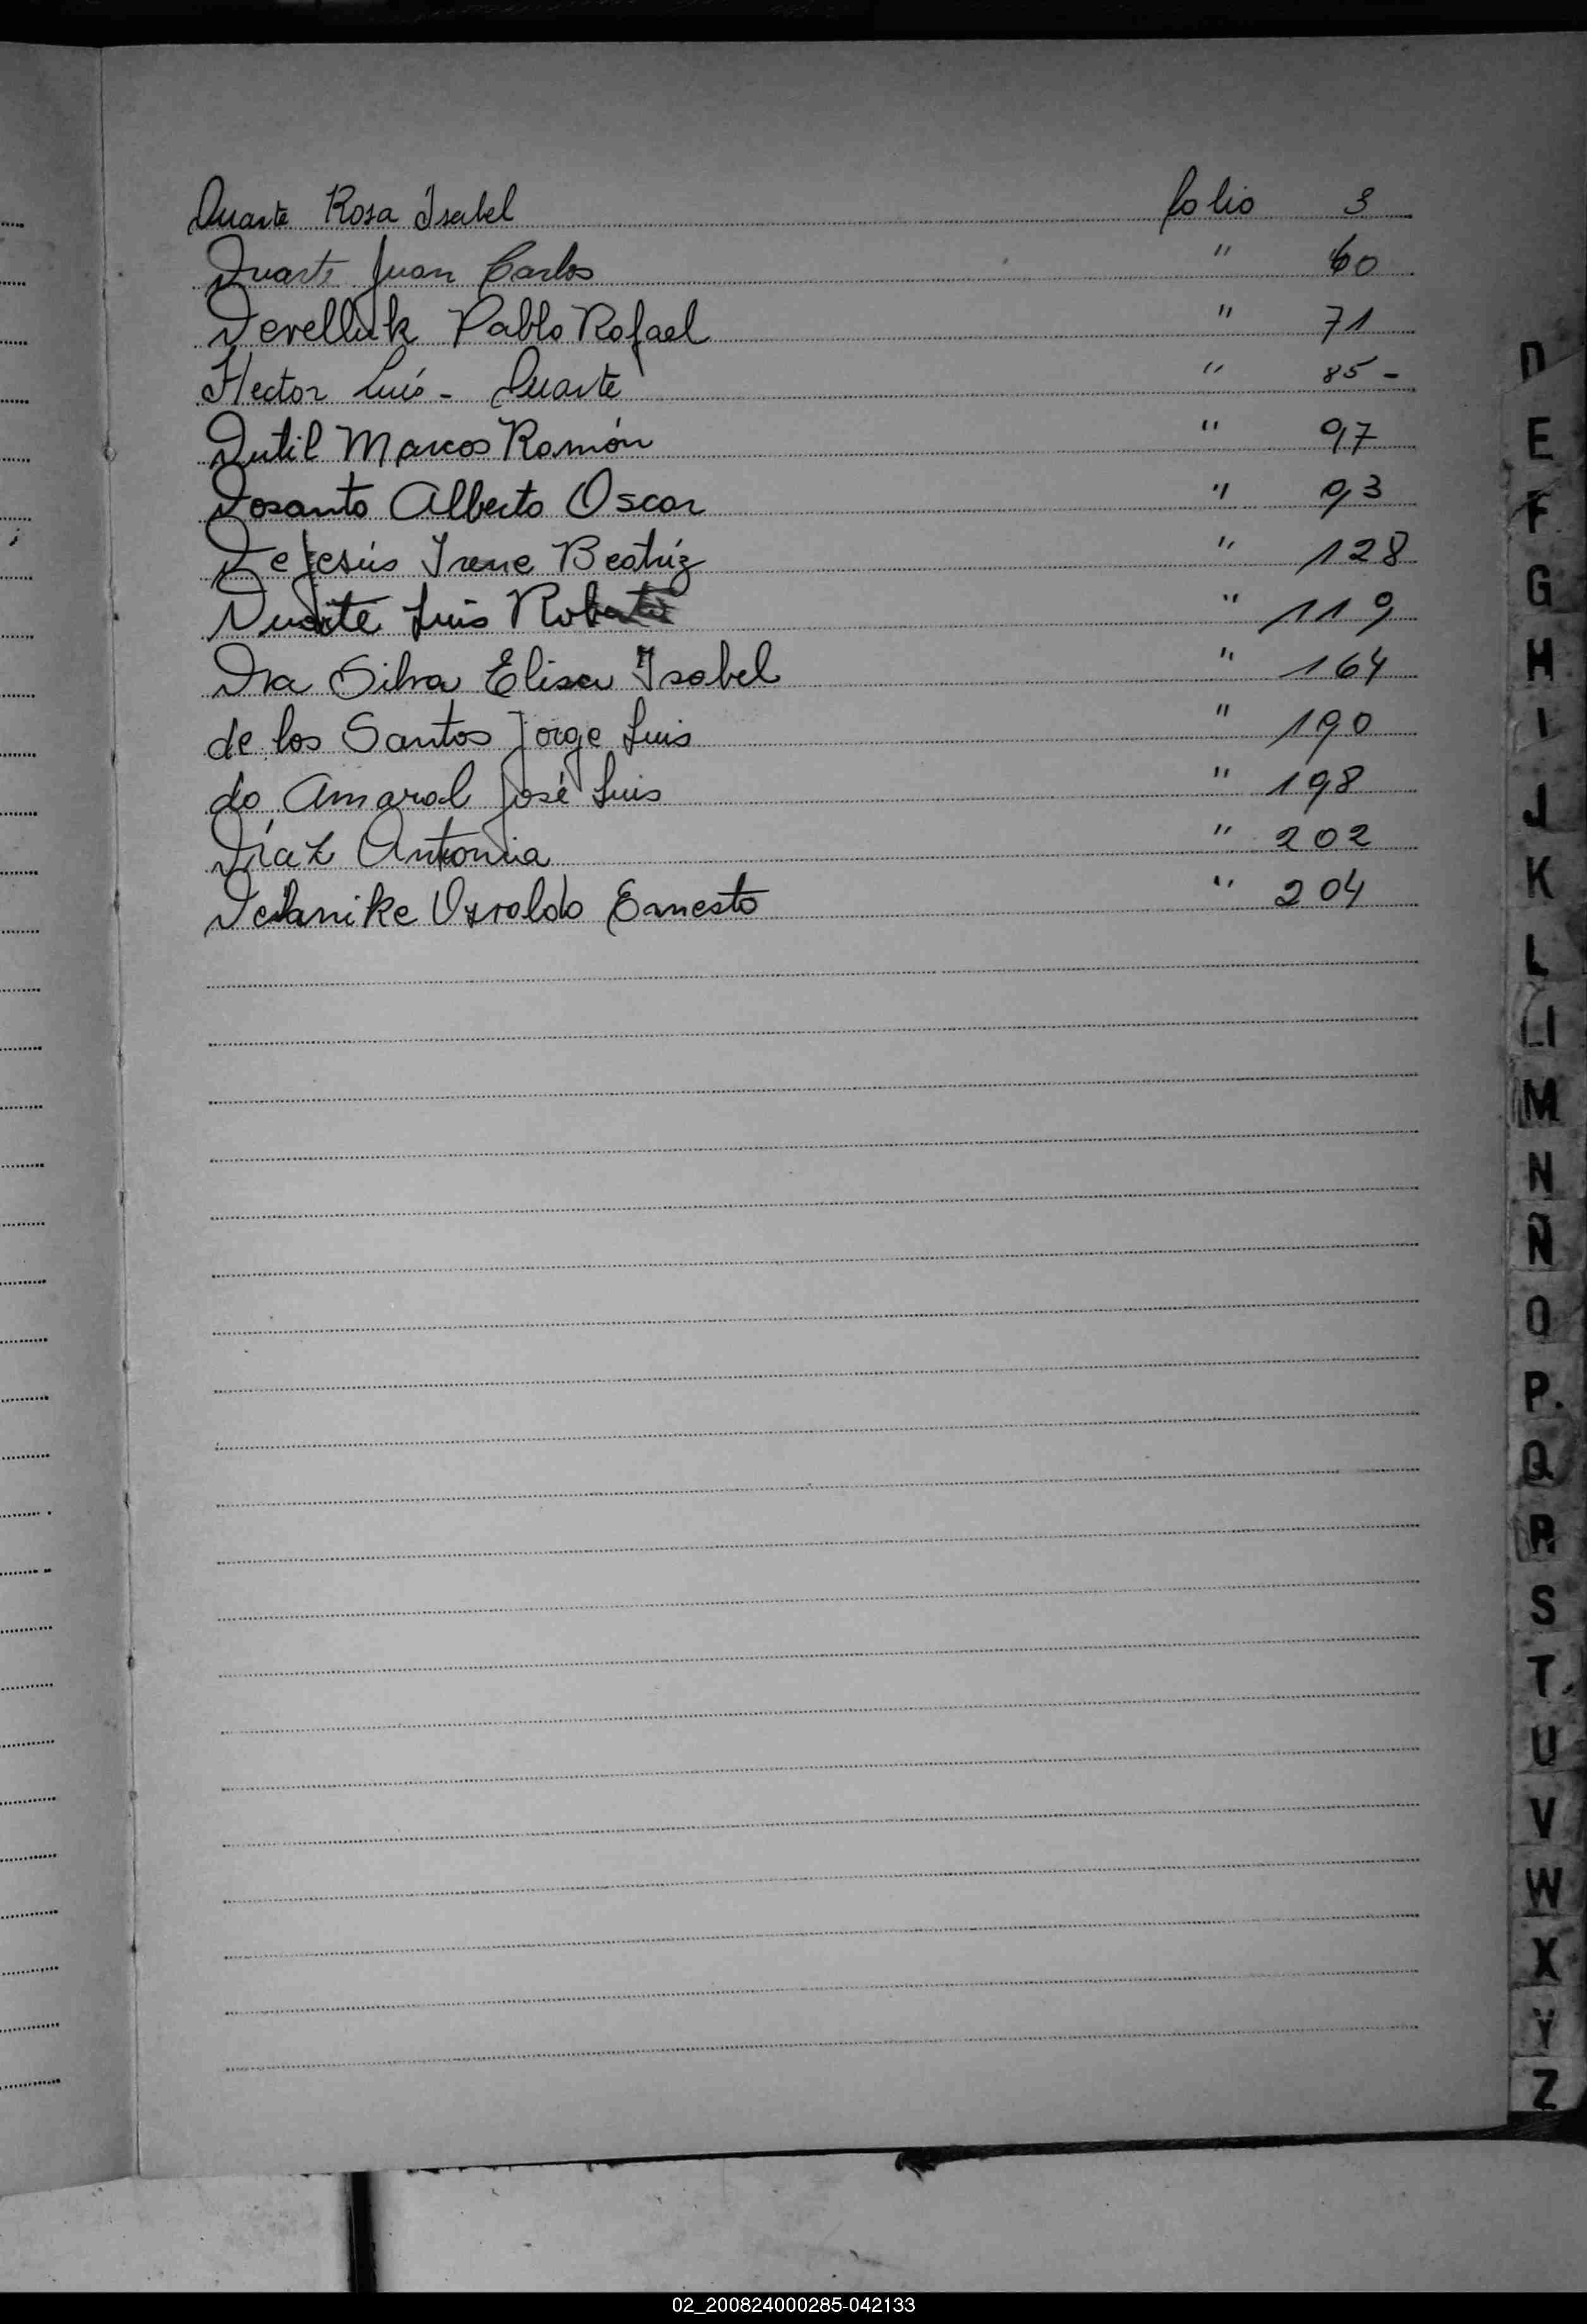 Duarte Rosa Isabel folio 3
Duarte Juan Carlos " 60
Develluk Pablo Rafael " 71
Hector Luis - Duarte " 85 -
Dutil Marcos Ramón " 97
Dosanto Alberto Oscar " 93
De Jesús Irene Beatríz " 128
Duarte Luis Roberto " 119
Da Silva Elisa Isabel " 164
de los Santos Jorge Luis " 190
do Amaral José Luis " 198
Díaz Antonia " 202
Osvaldo Ernesto " 204
D
E
F
G
H
I
J
K
L
LL
M
N
Ñ
O
P
Q
R
S
T
U
V
W
X
Y
Z
02_200824000285-042133